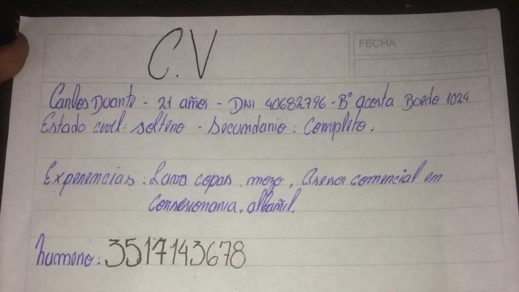 C.V
FECHA
Carlos Duarte - 21 años - DNI 40682796 - Bº acosta Boedo 1024
Estado civil: soltero - Secundario: Completo.
Experiencias: Lava copas, mozo, Asesor comercial em
Consesionaria, albañil.
humero: 3517143678